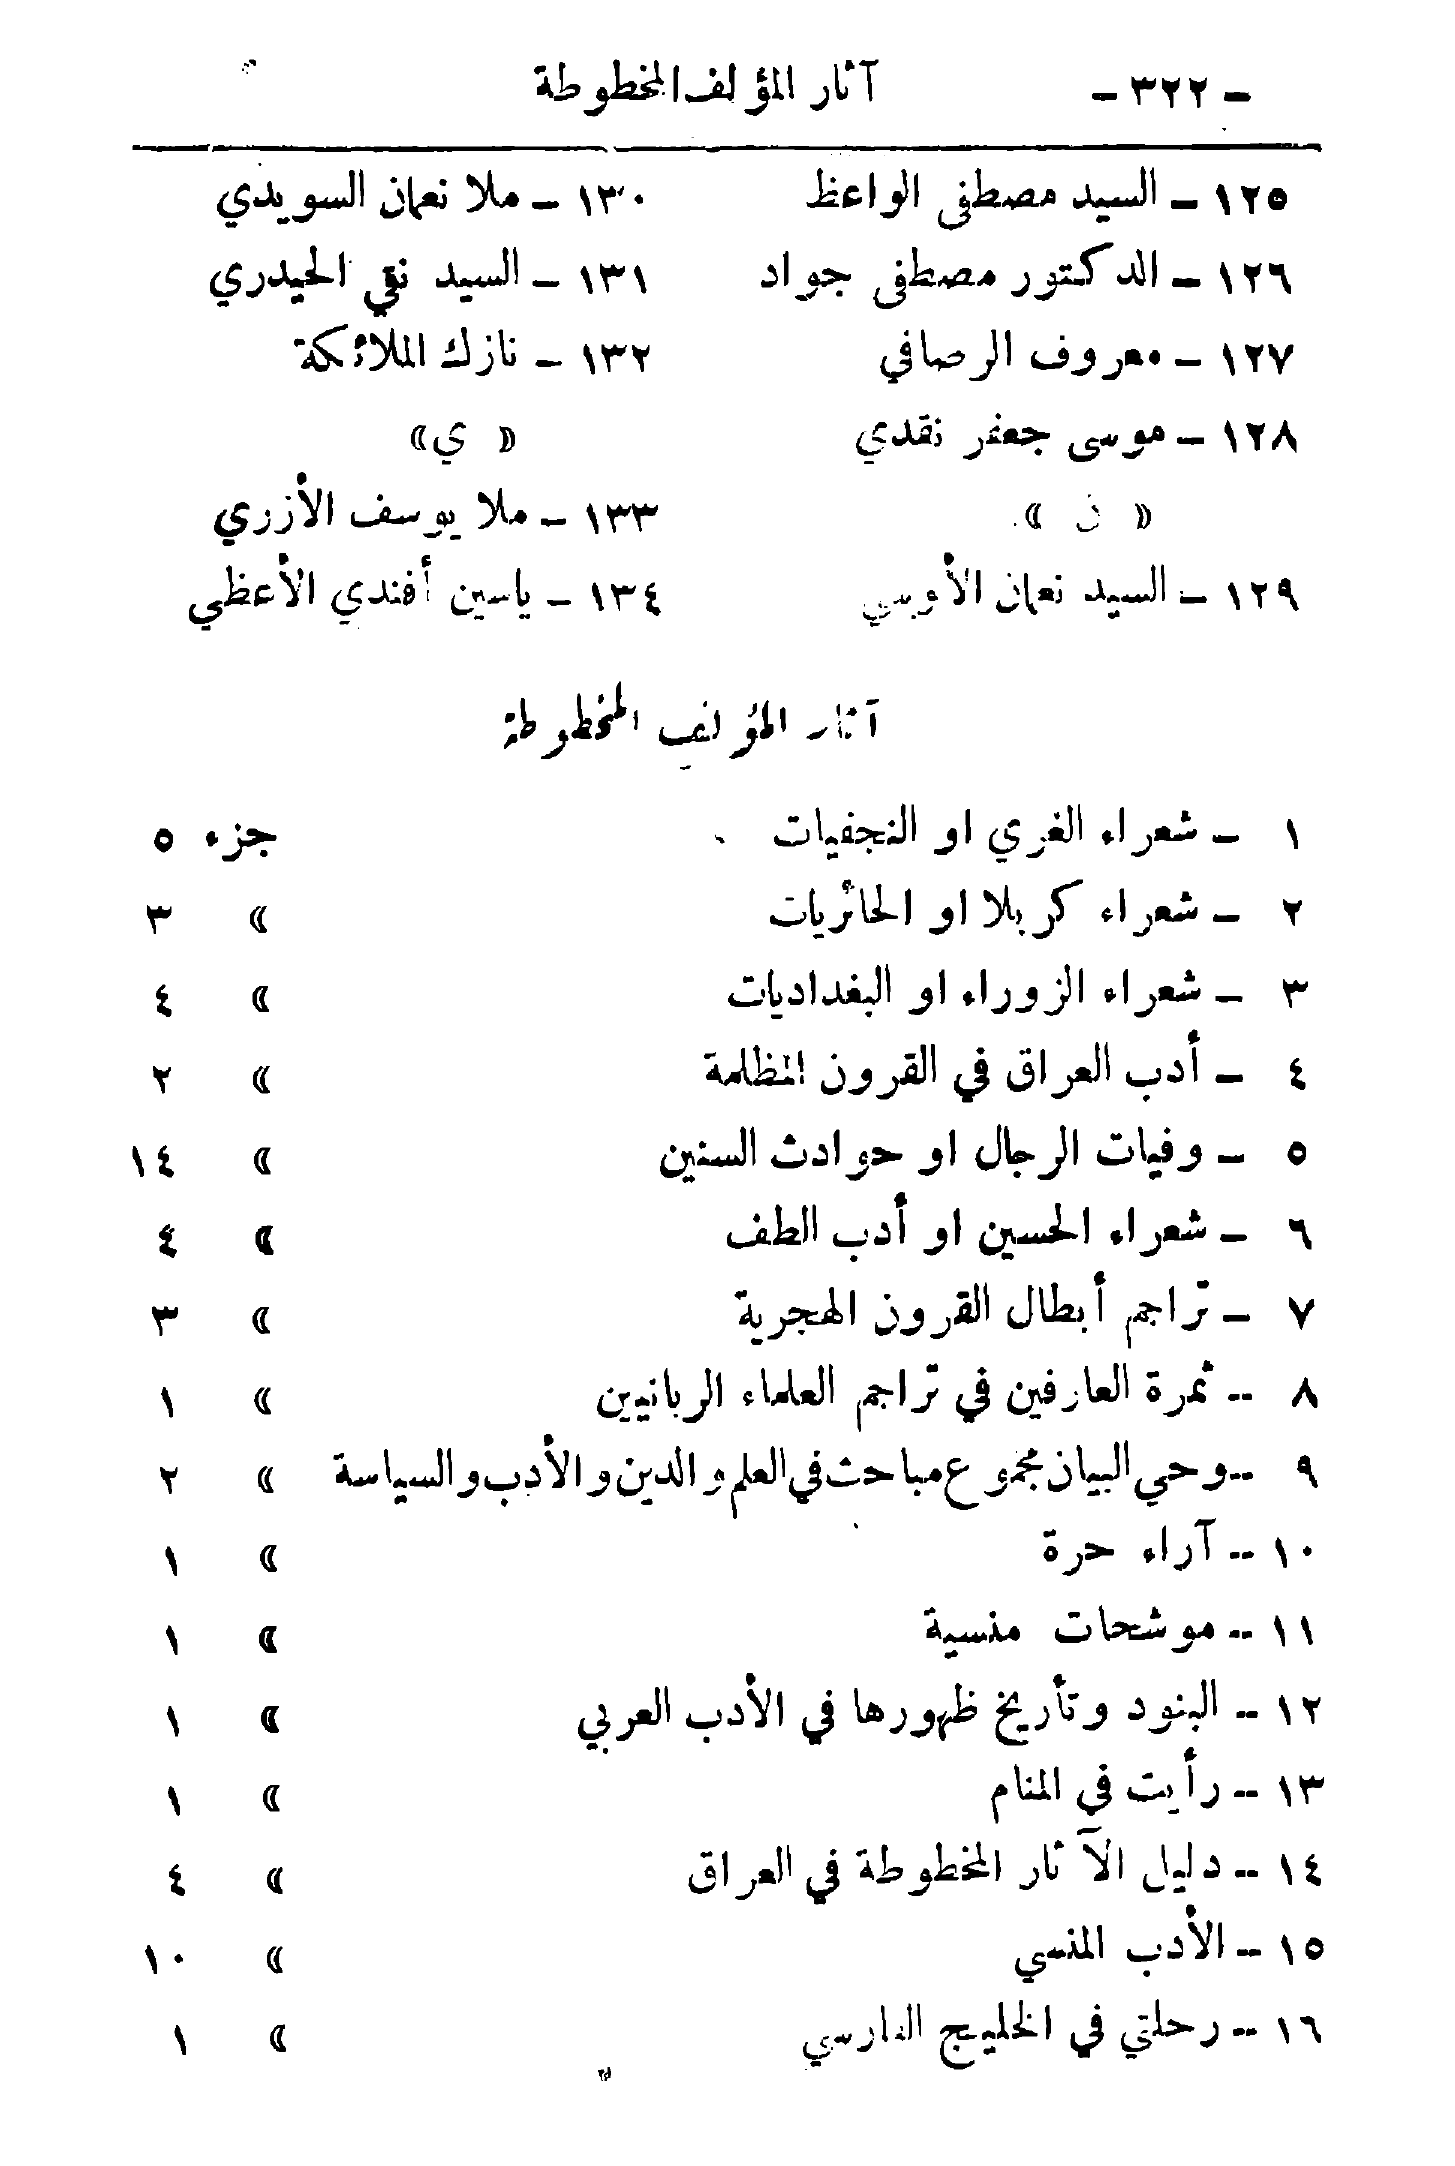 - ٣٢٢ - آثار المؤلف المخطوطة
١٢٥ - السيد مصطفى الواعظ
١٢٦ - الدكتور مصطفى جواد
١٢٧ - معروف الرصافي
١٢٨ - موسى جعفر نقدي
« ن »
١٢٩ - السيد نعمان الأوسي
١٣٠ - ملا نعمان السويدي
١٣١ - السيد نقي الحيدري
١٣٢ - نازك الملائكة
« ي »
١٣٣ - ملا يوسف الأزري
١٣٤ - ياسين أفندي الأعظي
آثار المؤلف المخطوطة
١ - شعراء الغري او النجفيات جزء ٥
٢ - شعراء كربلا او الحائريات » ٣
٣ - شعراء الزوراء او البغداديات » ٤
٤ - أدب العراق في القرون المظلمة » ٢
٥ - وفيات الرجال او حوادث السنين » ١٤
٦ - شعراء الحسين او أدب الطف » ٤
٧ - تراجم أبطال القرون الهجرية » ٣
٨ - ثمرة العارفين في تراجم العلماء الربانيين » ١
٩ - وحي البيان مجموع مباحث في العلم والدين والأدب والسياسة » ٢
١٠ - آراء حرة » ١
١١ - موشحات منسية » ١
١٢ - البنود وتأريخ ظهورها في الأدب العربي » ١
١٣ - رأيت في المنام » ١
١٤ - دليل الآثار المخطوطة في العراق » ٤
١٥ - الأدب المنسي » ١٠
١٦ - رحلتي في الخليج الفارسي » ١